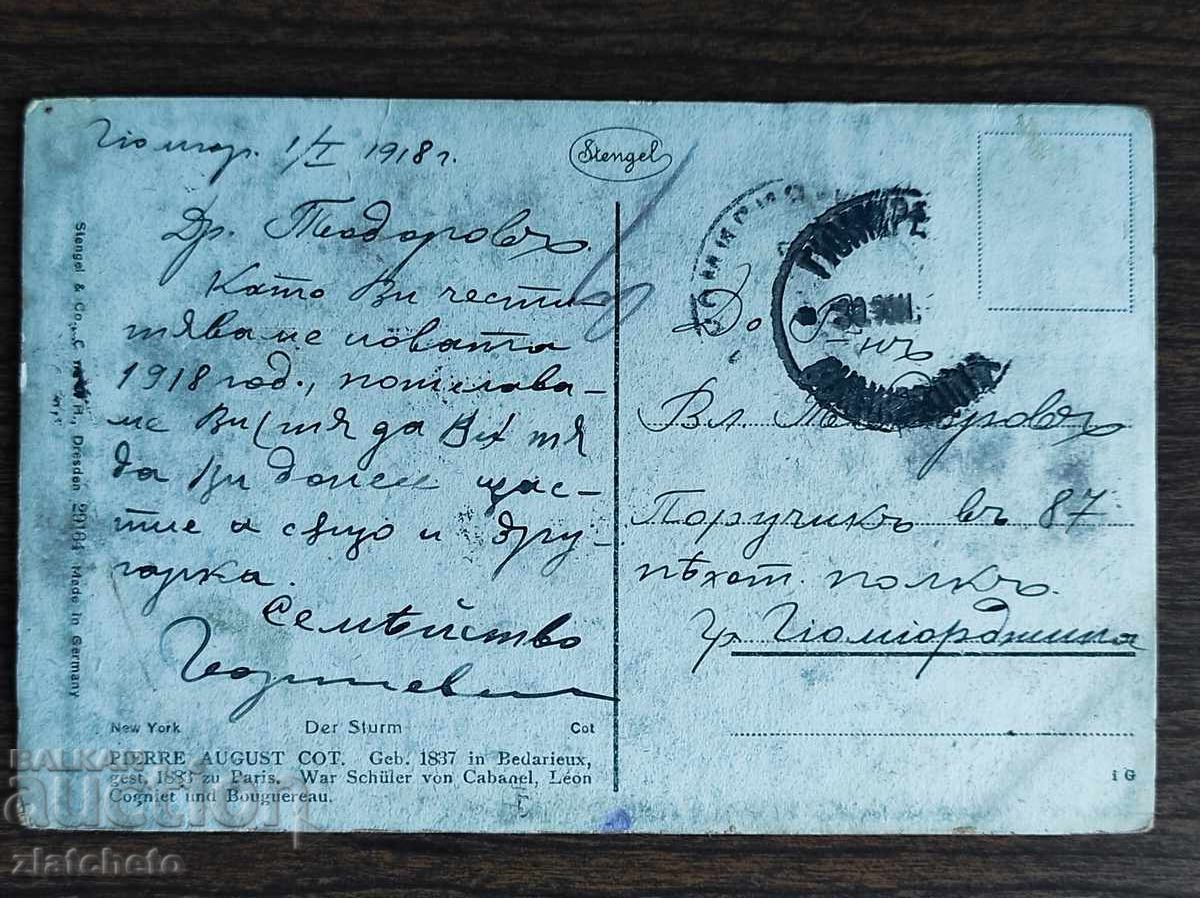 Гюмюр. 1/I 1918 г.
Stengel
Др. Теодоровъ.
Като Ви чести-
тяваме новата
1918 год., пожелава-
ме Ви тя да
да Ви донесе щас-
тие а също и дру-
гарка.
Семѣйство
До Г-нъ
Вл. Теодоровъ
Поручикъ въ 87
пѣхот. полкъ.
гр. Гюмюрджина
ГЮМЮР
New York Der Sturm Cot
PIERRE AUGUST COT. Geb. 1837 in Bedarieux,
gest. 1883 zu Paris. War Schüler von Cabanel, Léon
Cogniet und Bouguereau.
1 G
Stengel & Co., Dresden 29164 Made in Germany
BALKAN
auction
zlatcheto